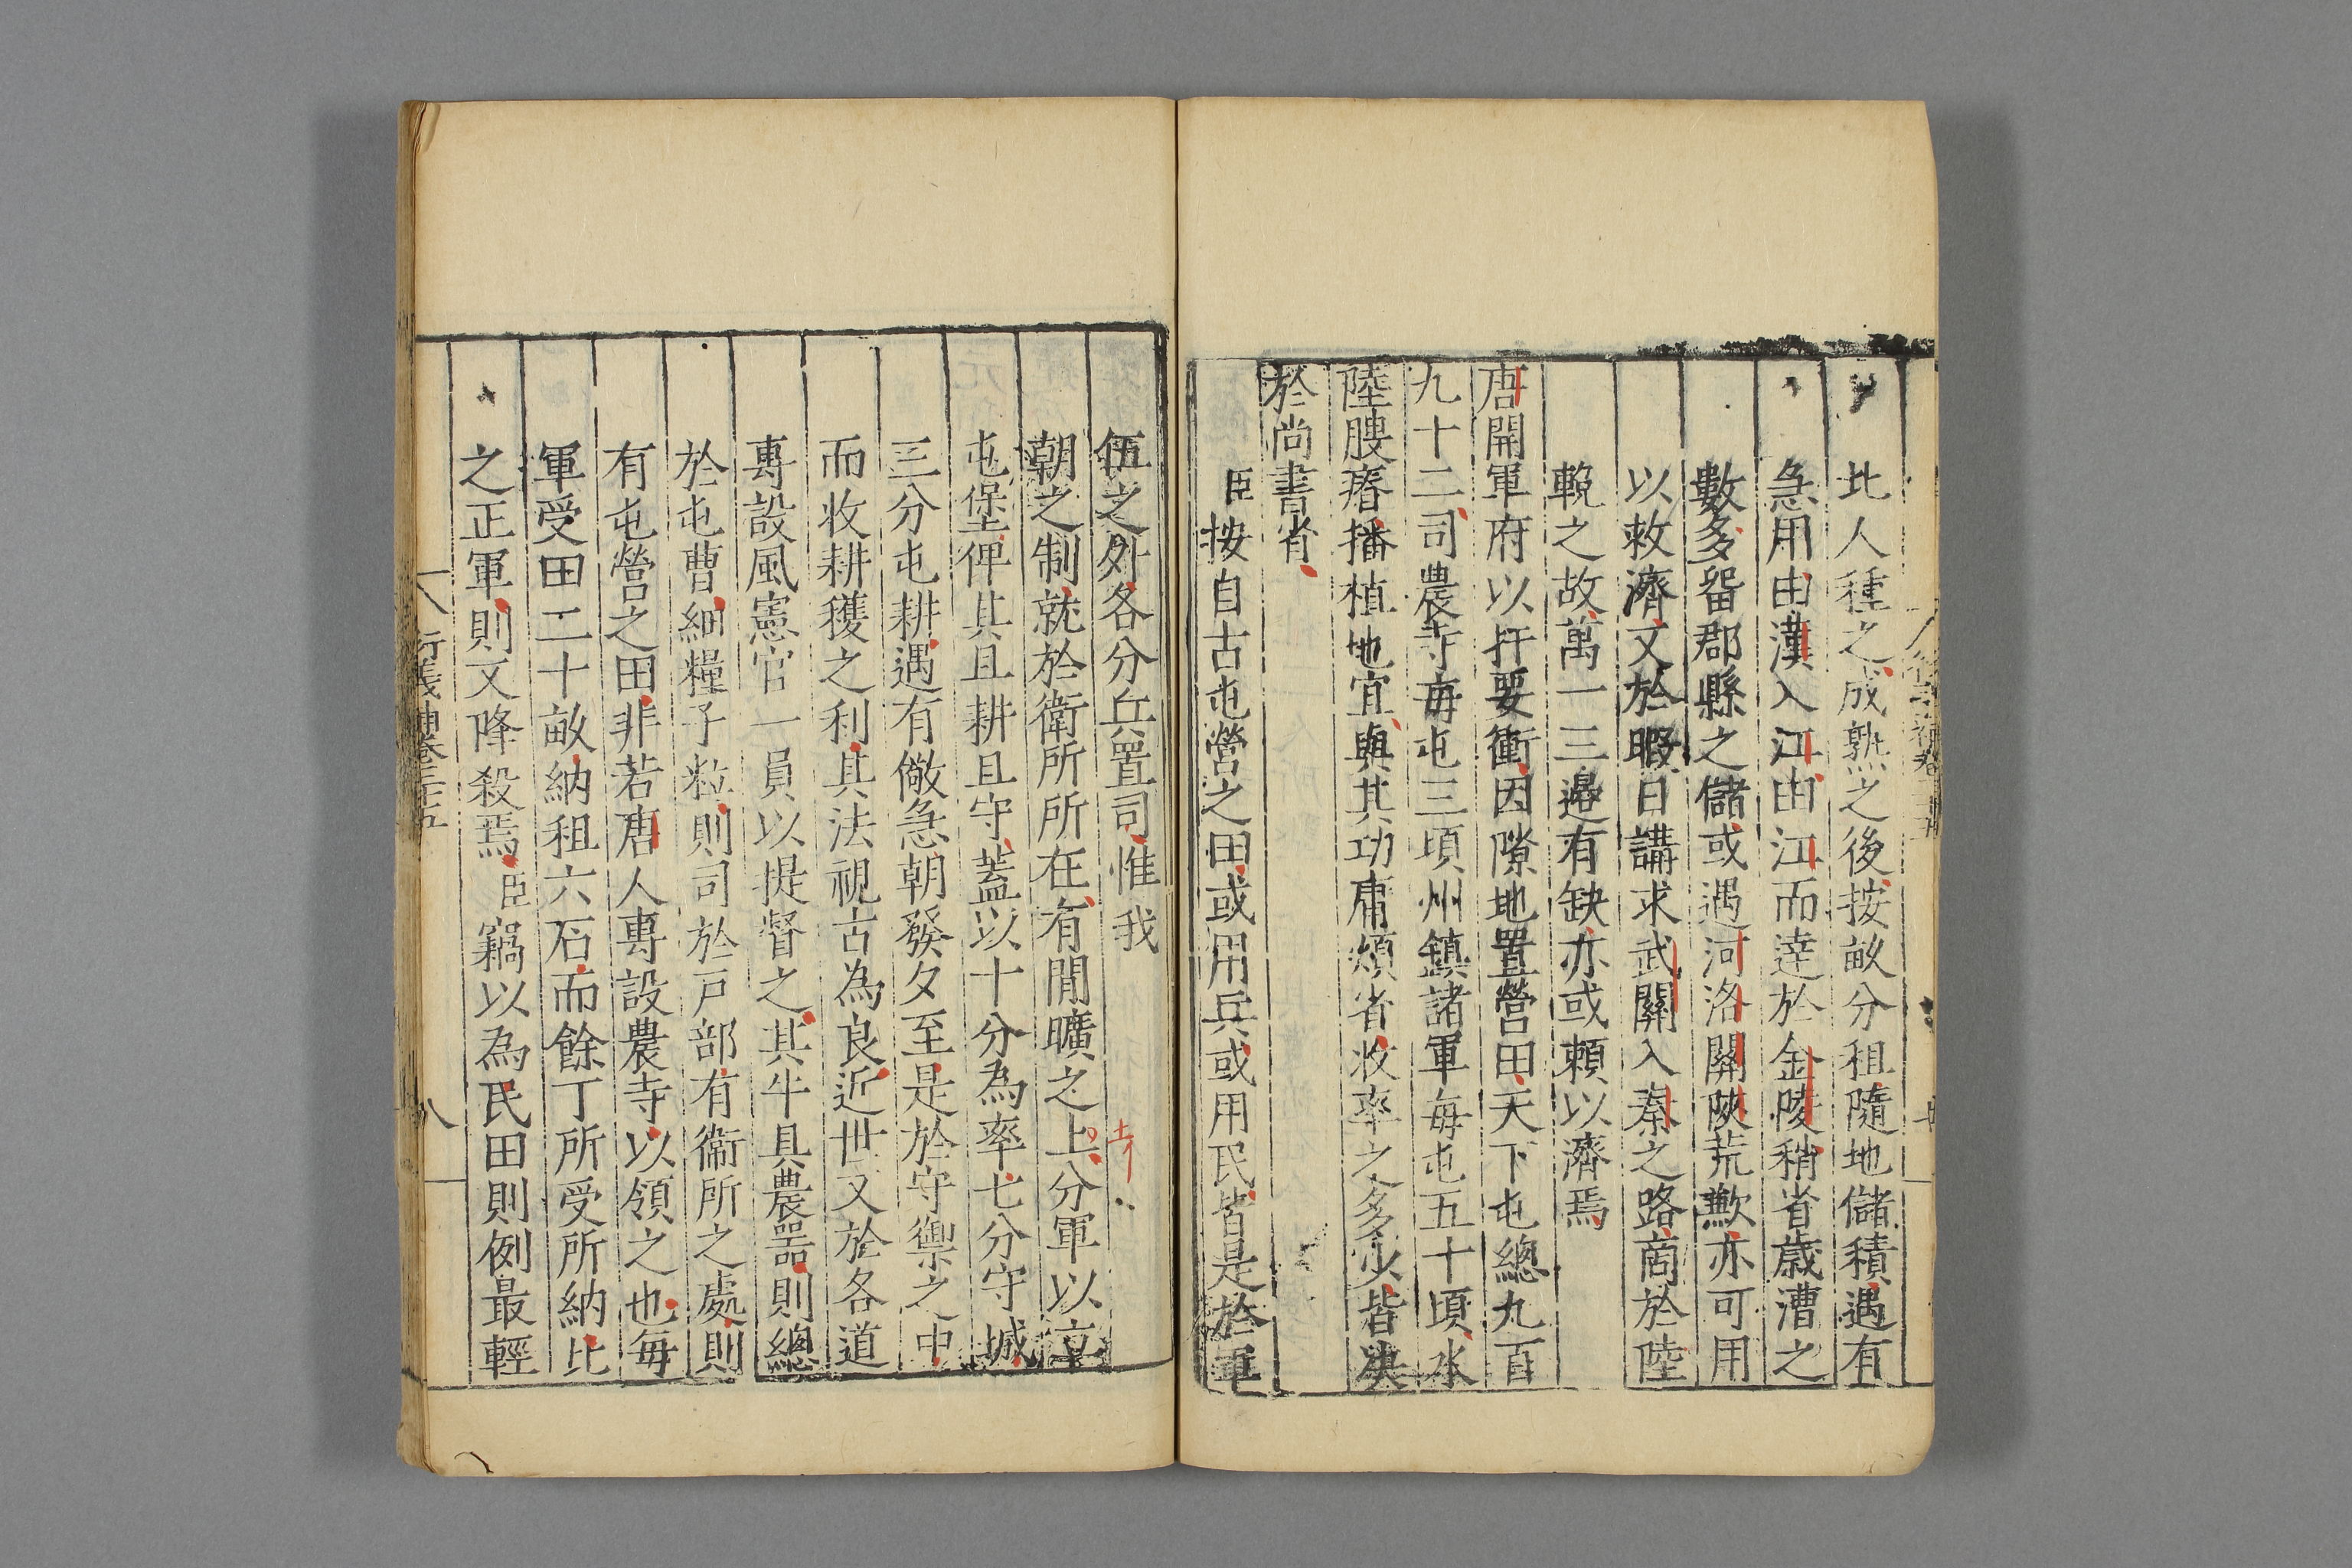 此人種之成熟之後按畝分租隨地儲積遇有
急用由漢入江由江而達於金陵稍省歲漕之
數多留郡縣之儲或遇河洛關陝荒歉亦可用
以救濟又於暇日講求武關入秦之路商於陸
輓之故萬一三邊有缺亦或賴以濟焉
唐開軍府以扞要衝因隙地置營田天下屯總九百
九十二司農寺每屯三頃州鎮諸軍每屯五十頃水
陸腴瘠播植地宜與其功庸煩省收率之多少皆决
於尚書省
臣按自古屯營之田或用兵或用民皆是於軍
伍之外各分兵置司惟我
朝之制就於衛所所在有閒曠之土分軍以立
屯堡俾其且耕且守蓋以十分為率七分守城
三分屯耕遇有儆急朝發夕至是於守禦之中
而收耕獲之利其法視古為良近世又於各道
專設風憲官一員以提督之其牛具農器則總
於屯曹細糧子粒則司於戶部有衞所之處則
有屯營之田非若唐人專設農寺以領之也每
軍受田二十畝納租六石而餘丁所受所納比
之正軍則又降殺焉臣竊以為民田則例最輕
衍義補卷三十五
八